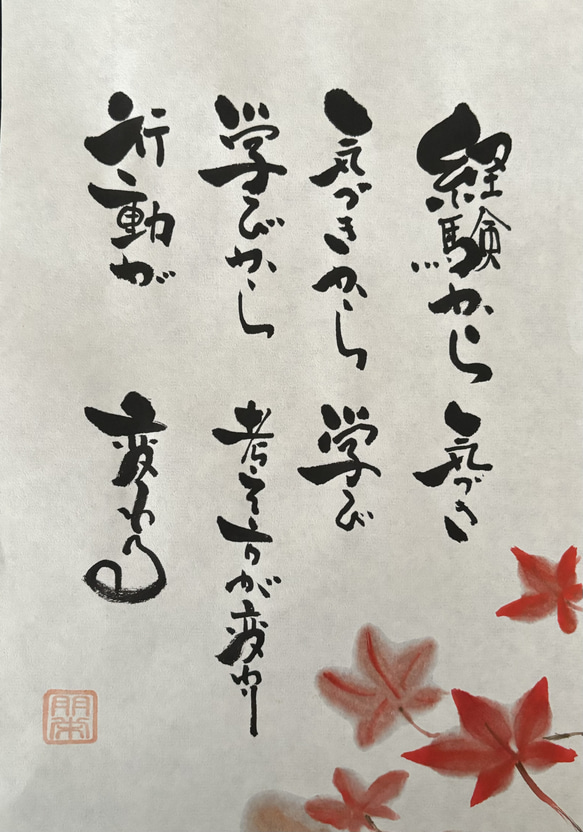 経験から 気づき
気づきから 学び
学びから 考え方が変わり
行動が 変わる